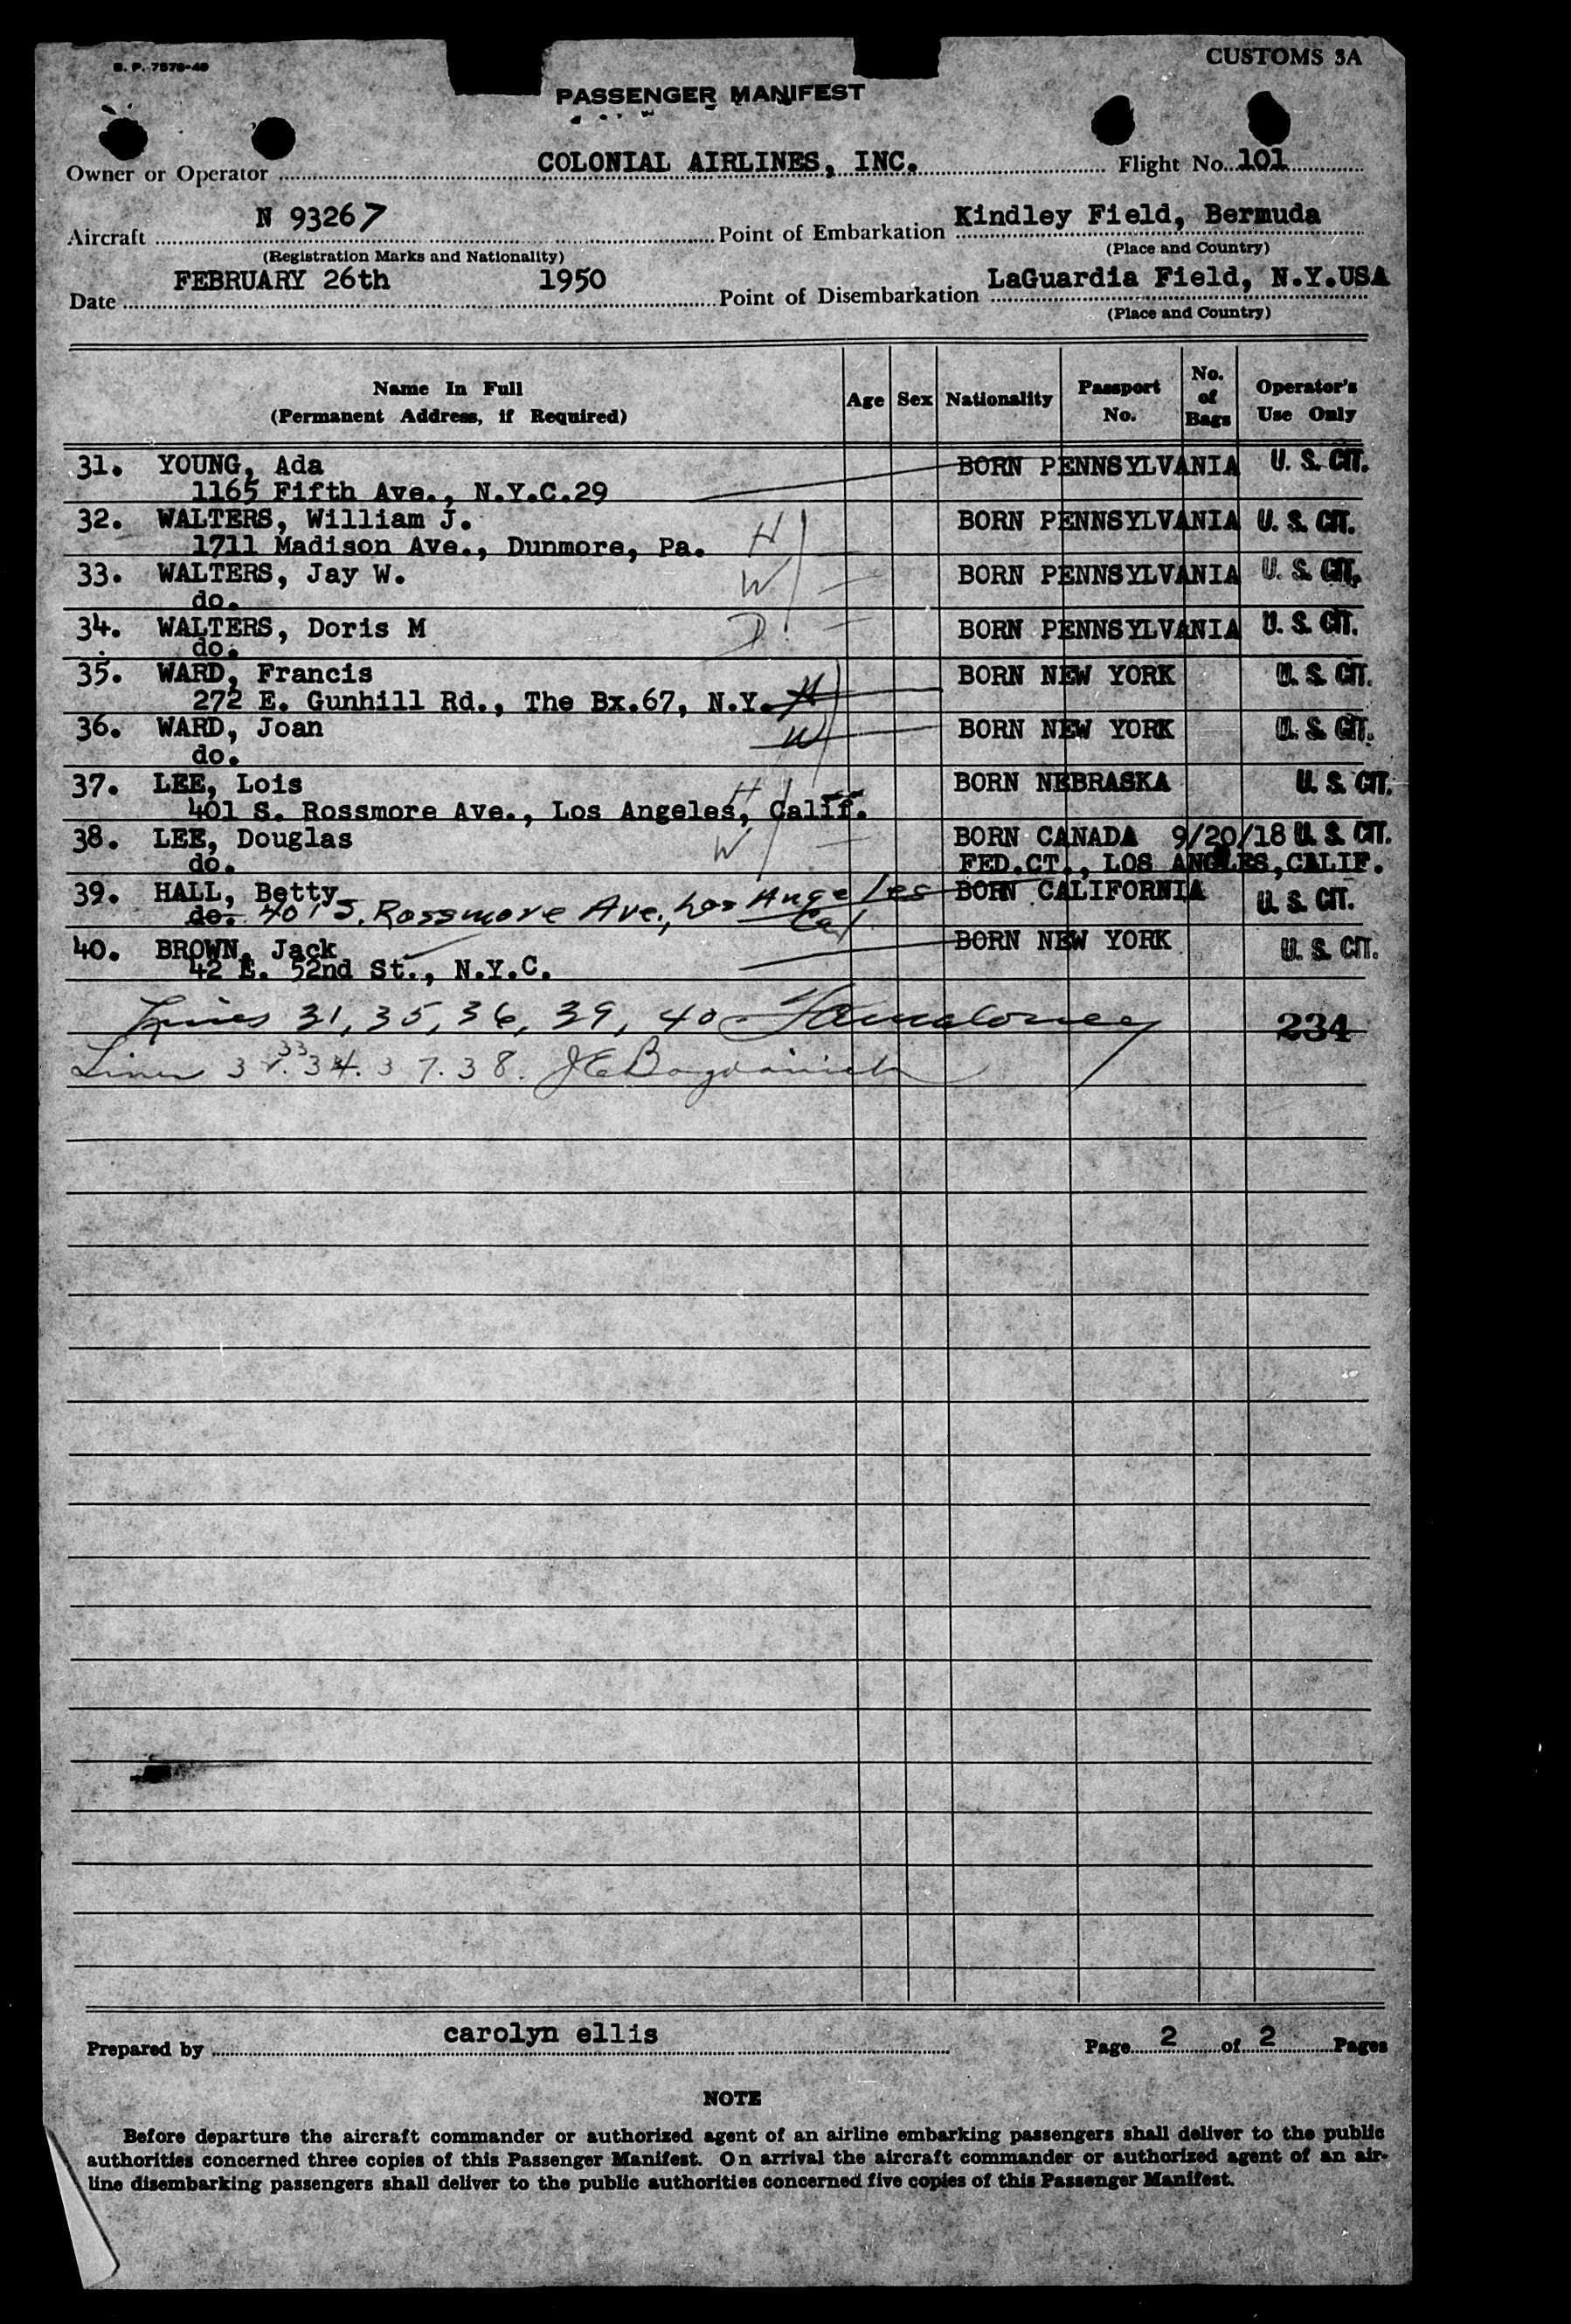 B. P. 7578-49
CUSTOMS 3A
PASSENGER MANIFEST
Owner or Operator COLONIAL AIRLINES, INC. Flight No. 101
Aircraft N 93267 Point of Embarkation Kindley Field, Bermuda
(Registration Marks and Nationality) (Place and Country)
Date FEBRUARY 26th 1950 Point of Disembarkation LaGuardia Field, N.Y.USA
(Place and Country)
Name In Full (Permanent Address, if Required) Age Sex Nationality Passport No. No. of Bags Operator's Use Only
31. YOUNG, Ada BORN PENNSYLVANIA U. S. CIT.
1165 Fifth Ave., N.Y.C.29
32. WALTERS, William J. H BORN PENNSYLVANIA U. S. CIT.
1711 Madison Ave., Dunmore, Pa.
33. WALTERS, Jay W. W BORN PENNSYLVANIA U. S. CIT.
do.
34. WALTERS, Doris M D BORN PENNSYLVANIA U. S. CIT.
do.
35. WARD, Francis BORN NEW YORK U. S. CIT.
272 E. Gunhill Rd., The Bx.67, N.Y. H
36. WARD, Joan W BORN NEW YORK U. S. CIT.
do.
37. LEE, Lois H BORN NEBRASKA U. S. CIT.
401 S. Rossmore Ave., Los Angeles, Calif.
38. LEE, Douglas W BORN CANADA 9/20/18 U. S. CIT.
do. FED.CT., LOS ANGLES,CALIF.
39. HALL, Betty BORN CALIFORNIA U. S. CIT.
do. 401 S. Rossmore Ave., Los Angeles Cal
40. BROWN, Jack BORN NEW YORK U. S. CIT.
42 E. 52nd St., N.Y.C.
Lines 31, 35, 36, 39, 40 234
Lines 33 34. 37. 38.
Prepared by carolyn ellis Page 2 of 2 Pages
NOTE
Before departure the aircraft commander or authorized agent of an airline embarking passengers shall deliver to the public
authorities concerned three copies of this Passenger Manifest. On arrival the aircraft commander or authorized agent of an air-
line disembarking passengers shall deliver to the public authorities concerned five copies of this Passenger Manifest.